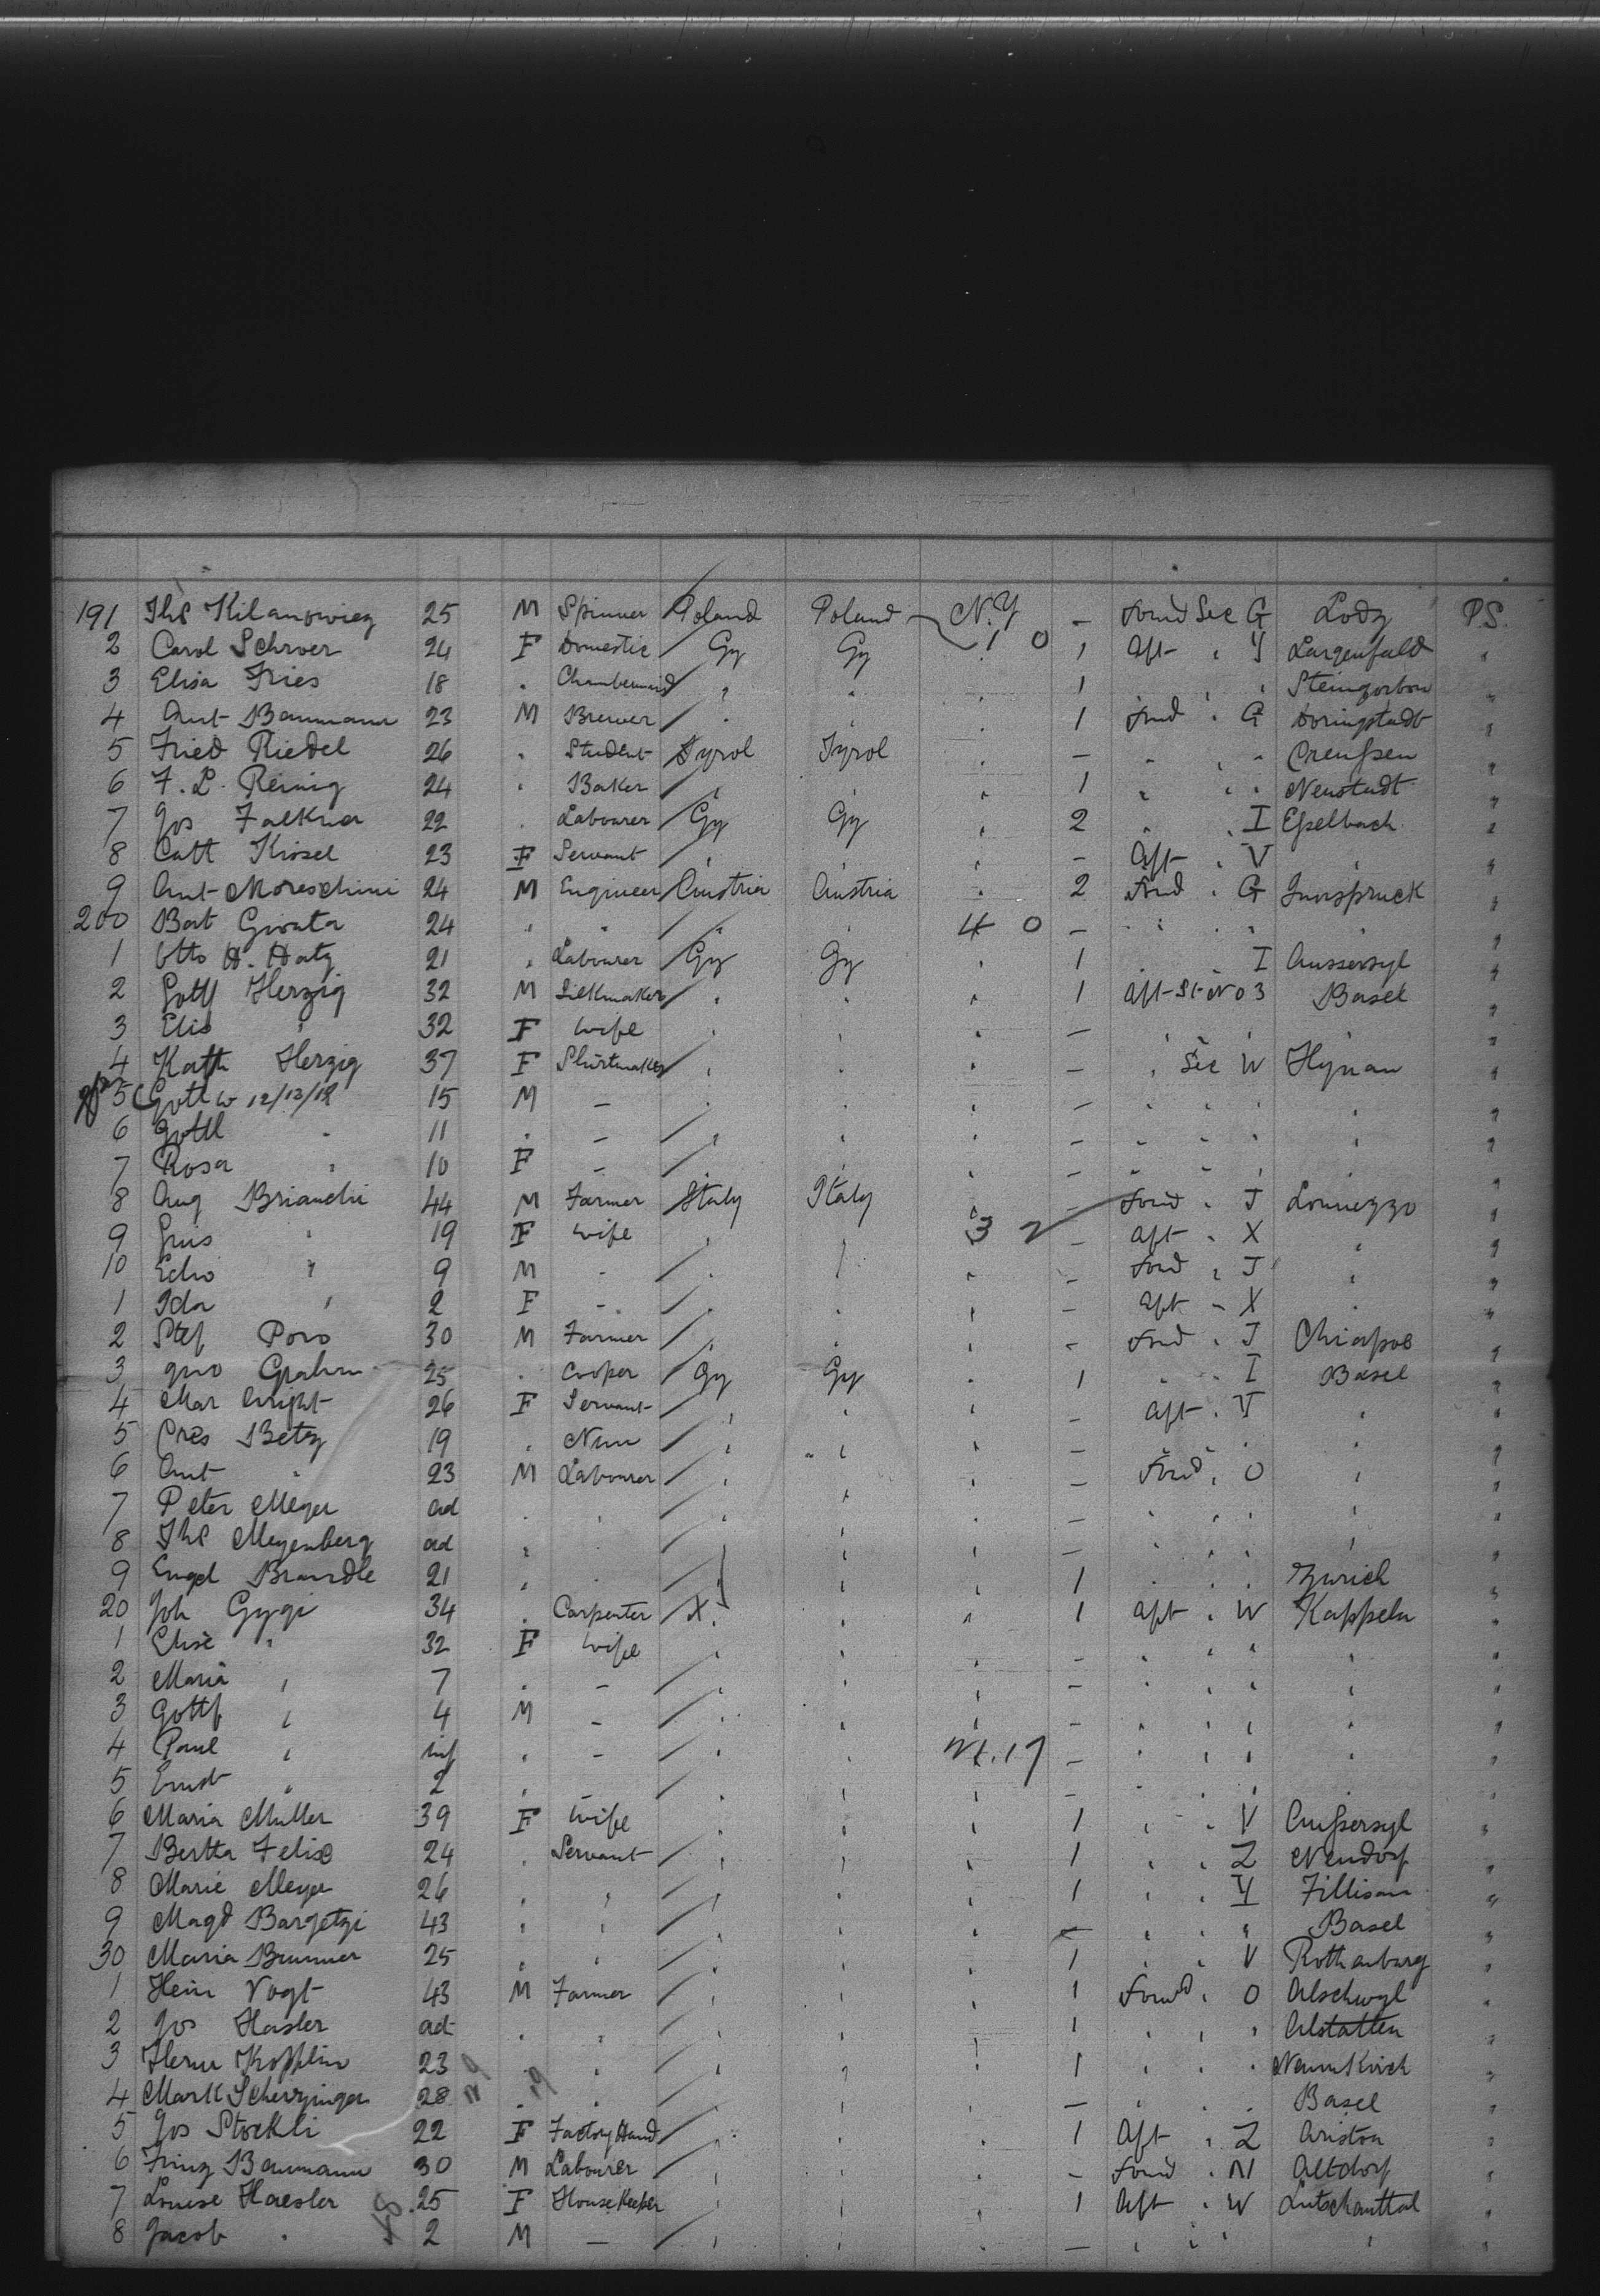 191 Kilanowicz 25 M Spinner Poland Poland N.Y - Forwd Sec G Lodz P.S.
2 Carol Schroer 24 F Domestic Gy Gy 1 0 1 Aft " Y Largenfeld "
3 Elisa Fries 18 " Chambermaid " " " 1 " " "
4 Ant Baumann 23 M Brewer " " " 1 Forwd " G "
5 Fried Riedel 26 " Student Tyrol Tyrol " - " " " Creußen "
6 F. L. Reinig 24 " Baker " " " 1 " " " Neustadt "
7 Jos Falkner 22 " Labourer Gy Gy " 2 " " I Eßelbach "
8 Cath 23 F Servant " " " - Aft " V " "
9 Ant Moreschini 24 M Engineer Austria Austria " 2 Forwd " G Innspruck "
200 Bat 24 " " " " 4 0 - " " " " "
1 Otto H. Hatz 21 " Labourer Gy Gy " 1 " " I Aussersyl "
2 Gottf Herzig 32 M Silkmaker " " " 1 Aft St No 3 Basel "
3 Elis " 32 F Wife " " " - " " " " "
4 Kath Herzig 37 F Shirtmaker " " " - " Sec W "
5 Gottl 12/12/18 15 M - " " " - " " " " "
6 Gottl " 11 " - " " " - " " " " "
7 Rosa " 10 F - " " " - " " " " "
8 Aug Brianchi 44 M Farmer Italy Italy " - Forwd " J "
9 " 19 F Wife " " 3 2 - Aft " X " "
10 " 9 M - " " " - Forwd " J " "
1 Ida " 2 F - " " " - Aft " X " "
2 Stef Poro 30 M Farmer " " " - Forwd " J "
3 Jno 25 " Cooper Gy Gy " 1 " " I Basel "
4 Mar 26 F Servant " " " - Aft " V " "
5 Cres Betz 19 " " " " - " " " " "
6 Ant " 23 M Labourer " " " - Forwd " O " "
7 Peter Meyer ad " " " " " - " " " " "
8 Meyenberg ad " " " " " - " " " " "
9 Engel Brandle 21 " " " " " 1 " " " Zurich "
20 Joh Gygi 34 " Carpenter X " " 1 Aft " W Kappeln "
1 Elise " 32 F Wife " " " - " " " " "
2 Maria " 7 " - " " " - " " " " "
3 Gottf " 4 M - " " " - " " " " "
4 Paul " inf " - " " 17 - " " " " "
5 Ernst " 2 " - " " " - " " " " "
6 Maria Muller 39 F Wife " " " 1 " " V Außersyl "
7 Bertha Felix 24 " Servant " " " 1 " " Z Nendorf "
8 Marie Meyer 26 " " " " " 1 " " Y "
9 Magd Bargetzi 43 " " " " " - " " " Basel "
30 Maria Brunner 25 " " " " " 1 " " V Rothenburg "
1 Hein Vogt 43 M Farmer " " " 1 Forwd " O Alschwyl "
2 Jos Hasler ad " " " " " 1 " " " Alstatten "
3 Herm Kopplin 23 " " " " " 1 " " " Neunkirch "
4 Mark Scherzinger 28 " " " " " - " " " Basel "
5 Jos Stockli 22 F Factory Hand " " " 1 Aft " Z Ariston "
6 Franz Baumann 30 M Labourer " " " - Forwd " N Altdorf "
7 Louise Haesler 25 F House Keeper " " " 1 Aft " W Lutschenthal "
8 Jacob " 2 M - " " " - " " " " "